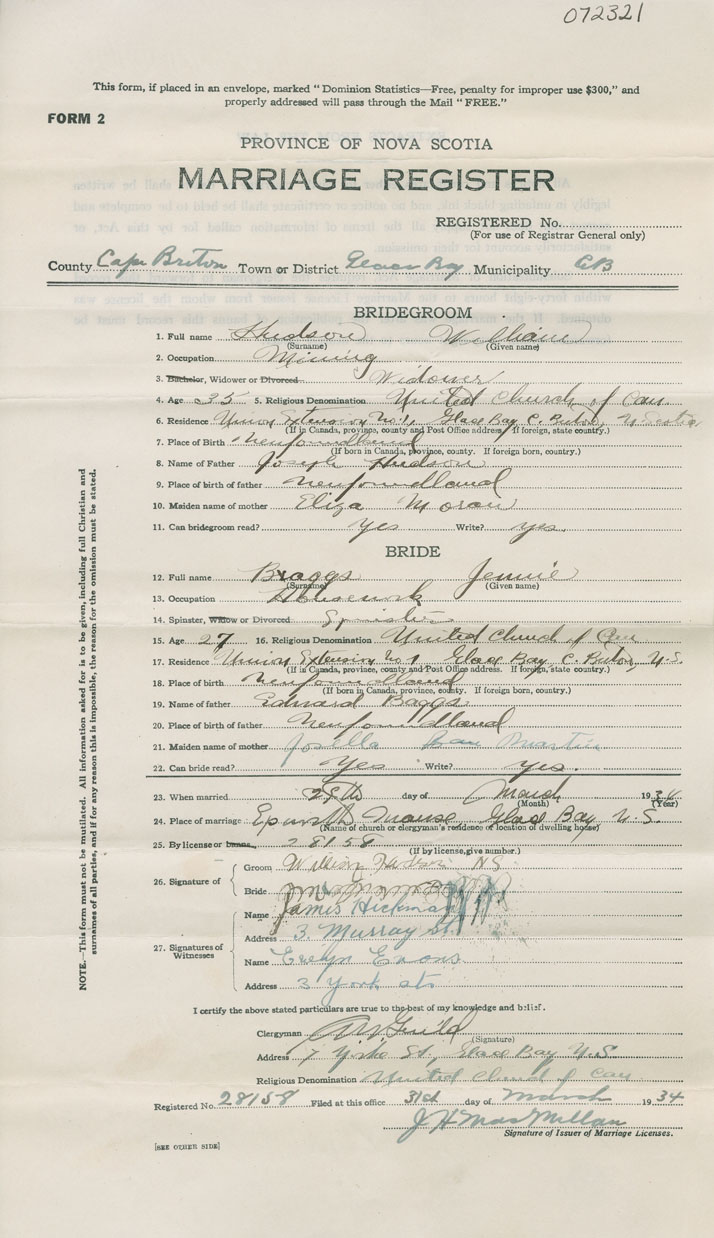 072321
This form, if placed in an envelope, marked "Dominion Statistics—Free, penalty for improper use $300," and
properly addressed will pass through the Mail "FREE."
FORM 2
PROVINCE OF NOVA SCOTIA
MARRIAGE REGISTER
REGISTERED No.
(For use of Registrar General only)
County Cape Breton Town or District Glace Bay Municipality CB
BRIDEGROOM
1. Full name Hudson William
(Surname) (Given name)
2. Occupation Mining
3. Bachelor, Widower or Divorced Widower
4. Age 35 5. Religious Denomination United Church of Can
6. Residence Union Extension No 1, Glace Bay C. Breton, N Scotia
(If in Canada, province, county and Post Office address. If foreign, state country.)
7. Place of Birth Newfoundland
(If born in Canada, province, county. If foreign born, country.)
8. Name of Father Joseph Hudson
9. Place of birth of father Newfoundland
10. Maiden name of mother Eliza Moran
11. Can bridegroom read? Yes Write? yes.
BRIDE
12. Full name Braggs Jennie
(Surname) (Given name)
13. Occupation Housework
14. Spinster, Widow or Divorced Spinster
15. Age 27 16. Religious Denomination United Church of Can
17. Residence Union Extension No 1 Glace Bay C. Breton, N.S.
(If in Canada, province, county and Post Office address. If foreign, state country.)
18. Place of birth Newfoundland
(If born in Canada, province, county. If foreign born, country.)
19. Name of father Edward Baggs
20. Place of birth of father Newfoundland
21. Maiden name of mother Martin
22. Can bride read? Yes Write? yes.
23. When married 28th day of March 1934
(Month) (Year)
24. Place of marriage Epworth Manse Glace Bay N.S.
(Name of church or clergyman's residence or location of dwelling house)
25. By license or banns 28158
(If by license, give number.)
26. Signature of
Groom William Hudson NS
Bride
27. Signatures of Witnesses
Name James Hickman
Address 3. Murray st.
Name Evelyn Evans
Address 3 York st.
I certify the above stated particulars are true to the best of my knowledge and belief.
Clergyman Guild
(Signature)
Address 7 Yorke St., Glace Bay N.S.
Religious Denomination United Church of Can
Registered No. 28158 Filed at this office 31st day of March 1934
J H MacMillan
Signature of Issuer of Marriage Licenses.
[SEE OTHER SIDE]
NOTE.—This form must not be mutilated. All information asked for is to be given, including full Christian and
surnames of all parties, and if for any reason this is impossible, the reason for the omission must be stated.